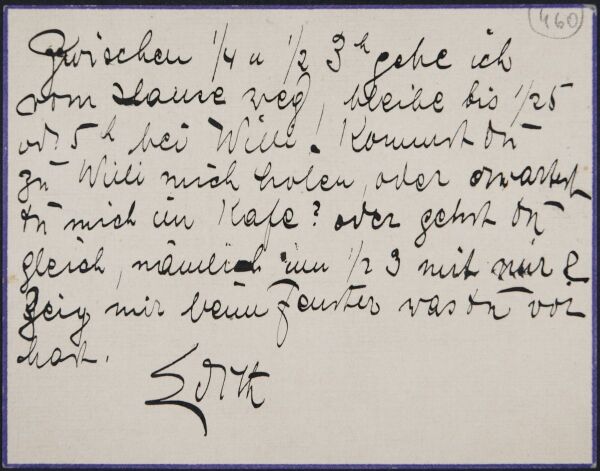 460
Zwischen 1/4 u 1/2 3h gehe ich
vom Hause weg, bleibe bis 1/25
od. 5h bei Willi! Kommst du
zu Willi mich holen, oder erwartest
du mich im Kafe? oder gehst du
gleich, nämlich um 1/2 3 mit mir?
Zeig mir beim Fenster was du vor
hast.
Edith